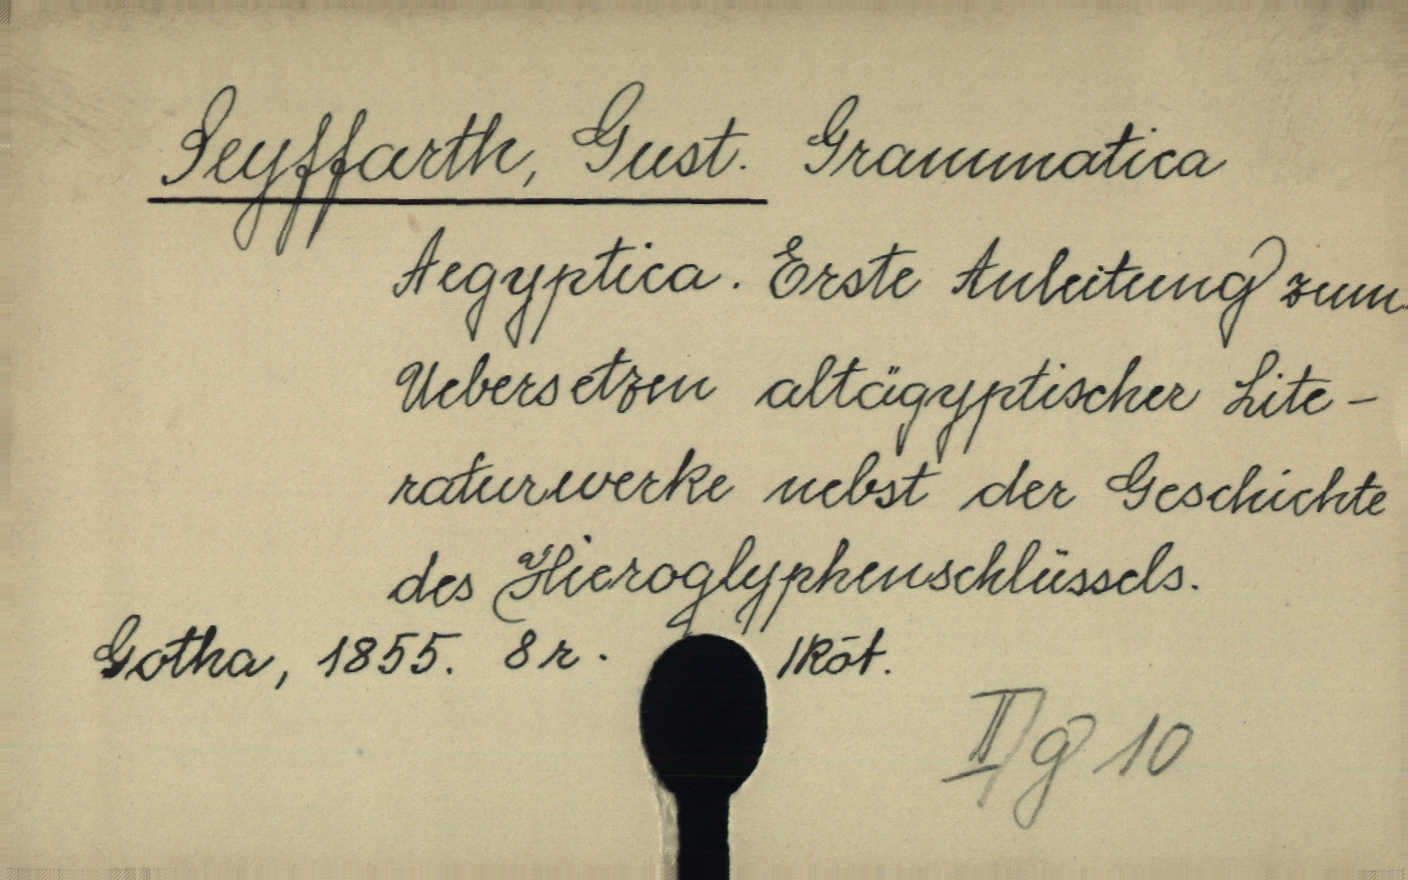 Seyffarth, Gust. Grammatica
Aegyptica. Erste Anleitung zum
Uebersetzen altägyptischer Lite-
raturwerke nebst der Geschichte
des Hieroglyphenschlüssels.
Gotha, 1855. 8r. 1Köt.
II/g 10